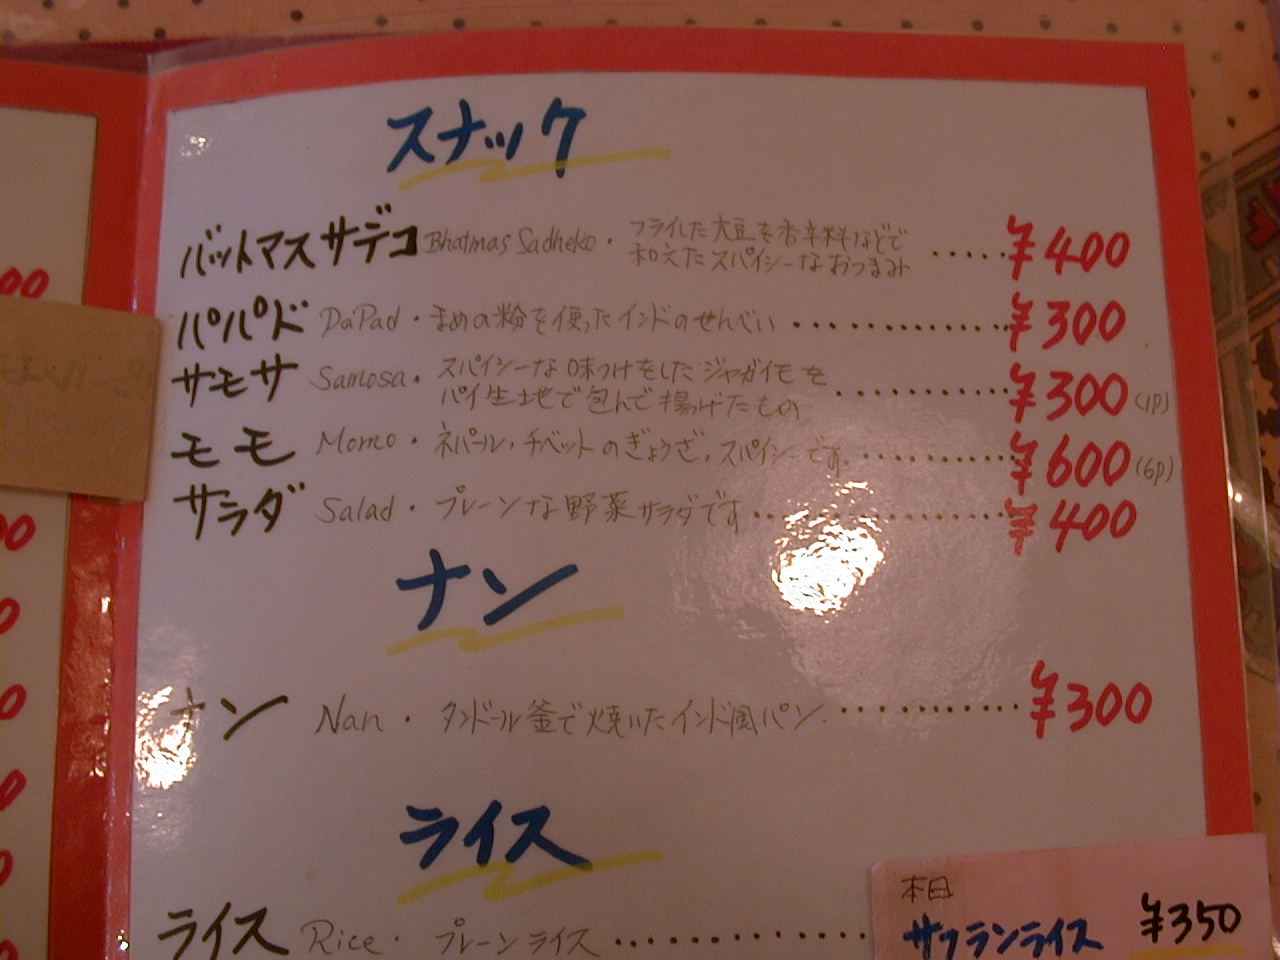 スナック
バットマスサデコ Bhatmas Sadheko ・ フライした大豆を香辛料などで ¥400
和えたスパイシーなおつまみ
パパド PaPad ・ まめの粉を使ったインドのせんべい ¥300
サモサ Samosa ・ スパイシーな味つけをしたジャガイモを ¥300 (1P)
パイ生地で包んで揚げたもの
モモ Momo ・ ネパール、チベットのぎょうざ。スパイシーです。 ¥600 (6P)
サラダ Salad ・ プレーンな野菜サラダです ¥400
ナン
ナン Nan ・ タンドール釜で焼いたインド風パン ¥300
ライス
ライス Rice ・ プレーンライス
本日
サフランライス ¥350